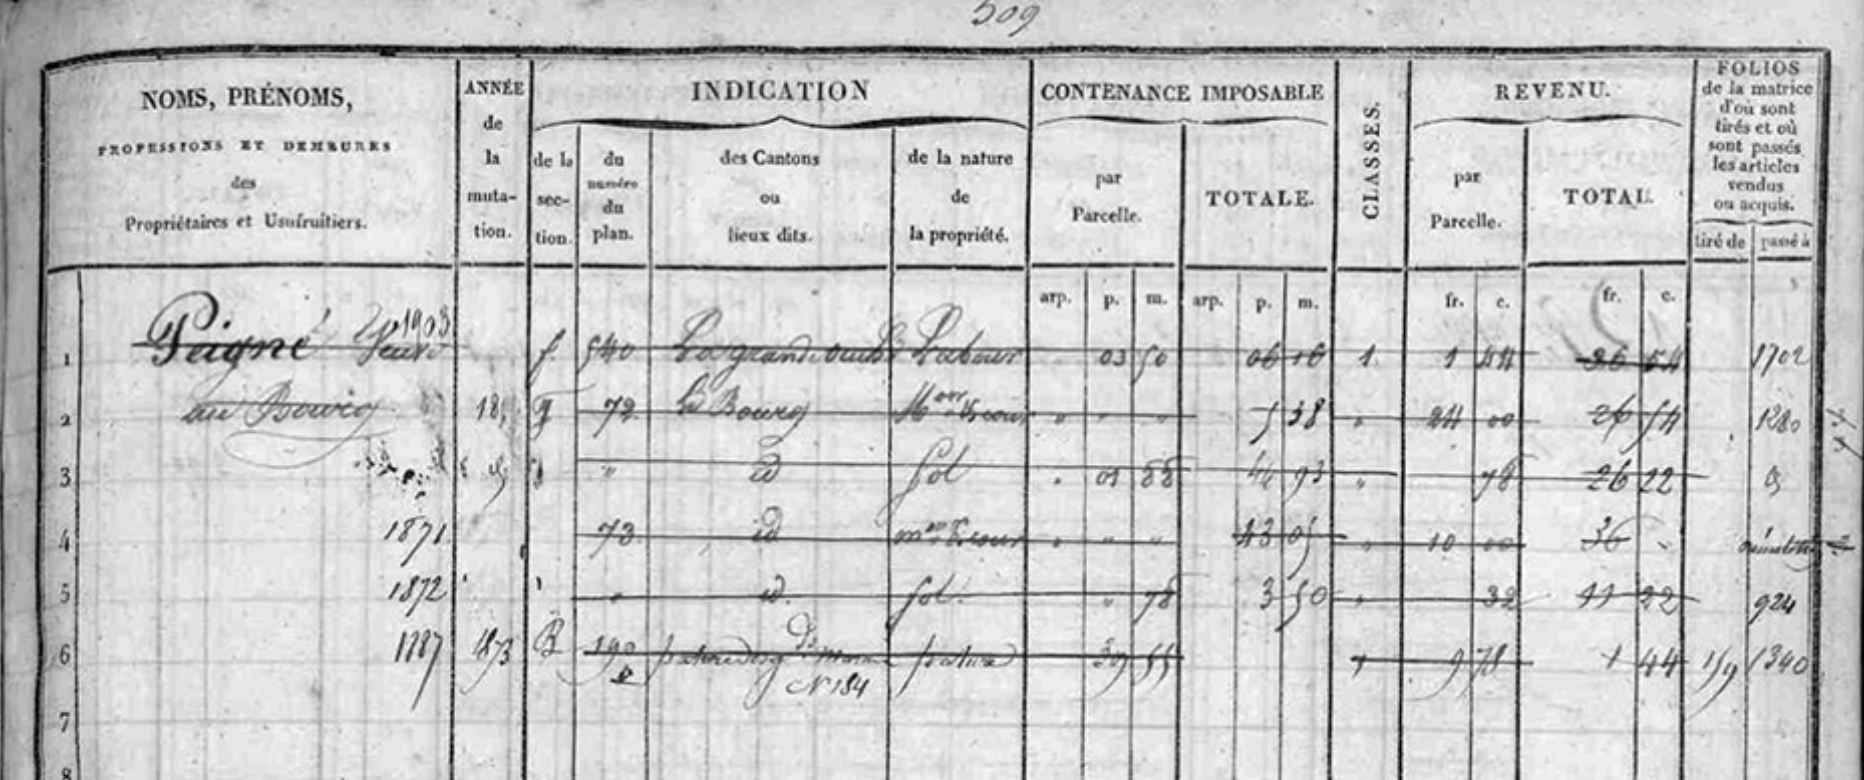 509
NOMS, PRÉNOMS,
PROFESSIONS ET DEMEURES
des
Propriétaires et Usufruitiers.
ANNÉE
de
la
muta-
tion.
INDICATION
de la
sec-
tion.
du
numéro
du
plan.
des Cantons
ou
lieux dits.
de la nature
de
la propriété.
CONTENANCE IMPOSABLE
par
Parcelle.
TOTALE.
CLASSES.
REVENU.
par
Parcelle.
TOTAL.
FOLIOS
de la matrice
d'où sont
tirés et où
sont passés
les articles
vendus
ou acquis.
tiré de passé à
arp. p. m. arp. p. m. fr. c. fr. c.
1903
1 Peigné Veuve f. 540 La grande Labour 03 50 06 16 1. 1 44 26 54 1702
2 au Bourg 72 le Bourg Mon & cour " " " 5 38 " 24 00 26 54 1280
3 " id Sol 01 88 44 93 " 78 26 22
4 1871 73 id mon & cour " " " 43 05 " 10 00 36 -
5 1872 " id. Sol. " 78 3 50 " 32 11 22 924
6 1887 1873 B 190 pature 39 55 9 78 1 44 159 1340
N 184
7
8